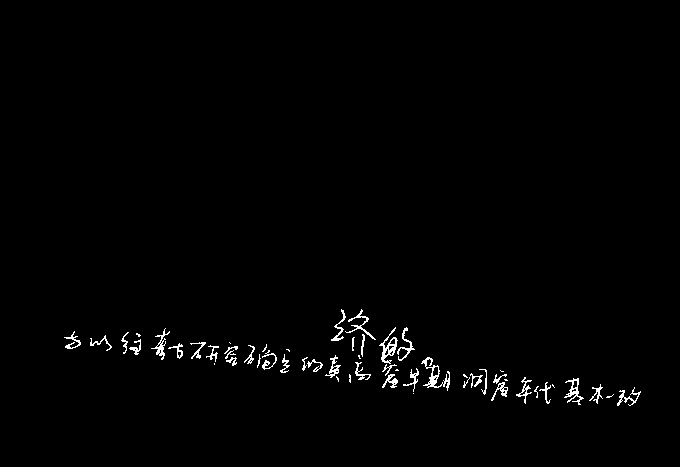 济的
与以往考古研究确定的莫高窟早期洞窟年代基本一致